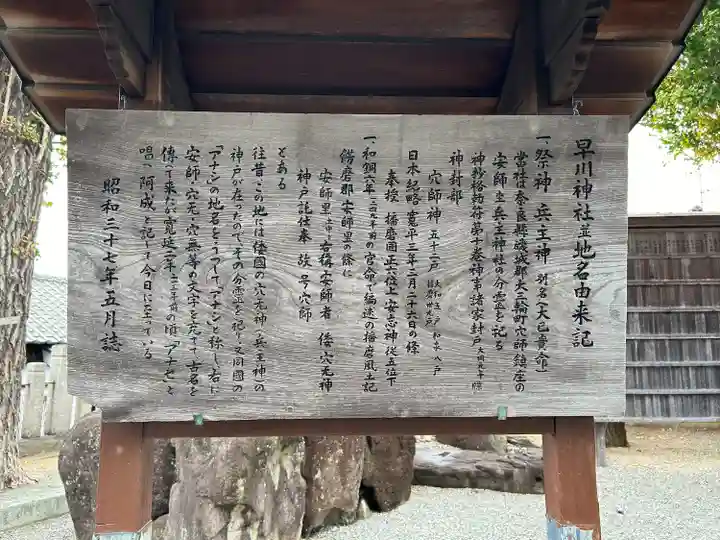 早川神社並地名由来記
一、祭神 兵主神 別名(大己貴命)
当社は奈良県磯城郡大三輪町穴師鎮座の
安師坐兵主神社の分霊を祀る
神抄格勅符第十巻神事諸家封戸 大同元年牒
神封部
穴師神 五十二戸 大和五戸 和泉八戸 播磨卅九戸
日本紀略寛平三年三月二十六日の条
奉授 播磨国正六位上安志神従五位下
一、和銅六年の官命で編述の播磨風土記
餝磨郡安師里の條に
安師里 右称安師者 倭穴无神
神戸託仕奉 故号穴師
とある
往昔、この地には倭国の穴无神(兵主神)の
神戸が在ったのでその分霊を祀り又同国の
「アナシ」の地名をうつして「アナシ」と称し、右に
安師・穴无・穴無等の文字を充てて古名を
傳って来たが寛延二年の頃「アナセ」と
唱へ阿成と記して今日に至っている
昭和三十七年五月誌